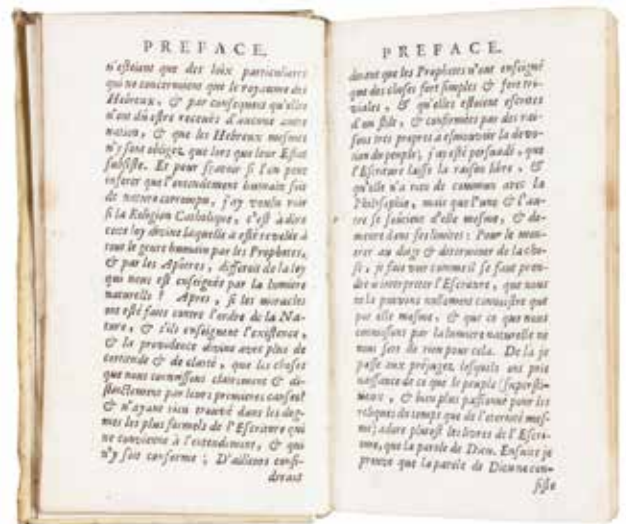 PREFACE.
n'eſtoient que des loix particulieres
qui ne concernoient que le royaume des
Hebreux, & par conſequent qu'elles
n'ont dû eſtre receuës d'aucune autre
nation, & que les Hebreux meſmes
n'y ſont obligez que lors que leur Eſtat
ſubſiſte. Et pour ſçavoir ſi l'on peut
inferer que l'entendement humain ſoit
de nature corrompu, j'ay voulu voir
ſi la Religion Catholique, c'eſt à dire
cette loy divine laquelle a eſté revelée à
tout le genre humain par les Prophetes,
& par les Apôtres, differoit de la loy
qui nous eſt enſeignée par la lumiere
naturelle? Apres, ſi les miracles
ont eſté faits contre l'ordre de la Na-
ture, & s'ils enſeignent l'exiſtence,
& la providence divine avec plus de
certitude & de clarté, que les choſes
que nous connoiſſons clairement & di-
ſtinctement par leurs premieres cauſes?
& n'ayant rien trouvé dans les dog-
mes les plus formels de l'Eſcriture qui
ne convienne à l'entendement, & qui
n'y ſoit conforme; D'ailleurs conſi-
derant
PREFACE.
derant que les Prophetes n'ont enſeigné
que des choſes fort ſimples & fort tri-
viales, & qu'elles eſtoient eſcrites
d'un ſtile, & confirmées par des rai-
ſons tres propres a eſmouvoir la devo-
tion du peuple; j'ay eſté perſuadé, que
l'Eſcriture laiſſe la raiſon libre, &
qu'elle n'a rien de commun avec la
Philoſophie, mais que l'une & l'au-
tre ſe ſoûtient d'elle meſme, & de-
meure dans ſes limites: Pour le mon-
trer au doigt & determiner de la cho-
ſe, je fais voir comme il ſe faut pren-
dre a interpreter l'Eſcriture, que nous
ne la pouvons nullement connoiſtre que
par elle meſme, & que ce que nous
connoiſſons par la lumiere naturelle ne
nous ſert de rien pour cela. De la je
paſſe aux préjugez, leſquels ont pris
naiſſance de ce que le peuple (ſuperſti-
tieux, & bien plus paſſionné pour les
reliques du temps que de l'eternité meſ-
me) adore pluſtoſt les livres de l'Eſcri-
ture, que la parole de Dieu. Enſuite je
preuve que la parole de Dieu ne con-
ſiſte